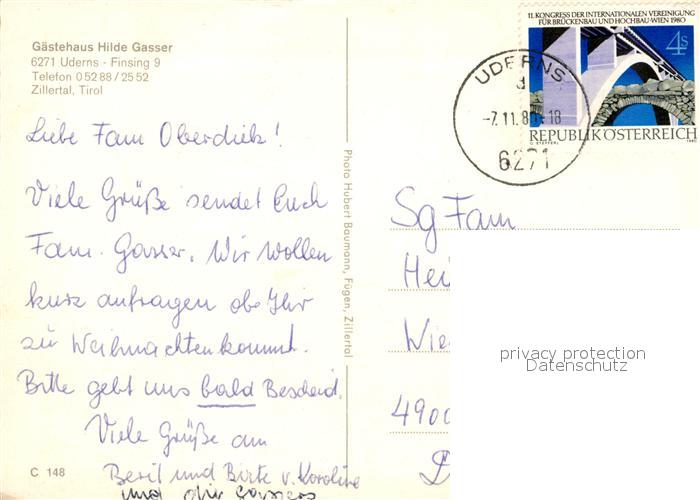 Gästehaus Hilde Gasser
6271 Uderns - Finsing 9
Telefon 0 52 88 / 25 52
Zillertal, Tirol
Liebe Fam Oberdiek!
Viele Grüße sendet Euch
Fam. Gasser. Wir wollen
kurz anfragen ob Ihr
zu Weihnachten kommt.
Bitte gebt uns bald Bescheid.
Viele Grüße an
Berit und Birte v. Karoline
und
C 148
Photo Hubert Baumann, Fügen, Zillertal
11. KONGRESS DER INTERNATIONALEN VEREINIGUNG
FÜR BRÜCKENBAU UND HOCHBAU·WIEN 1980
4s
REPUBLIK ÖSTERREICH
UDERNS
a
-7.11.8 -18
6271
Sg Fam
Hei
Wie
4900
D
privacy protection
Datenschutz